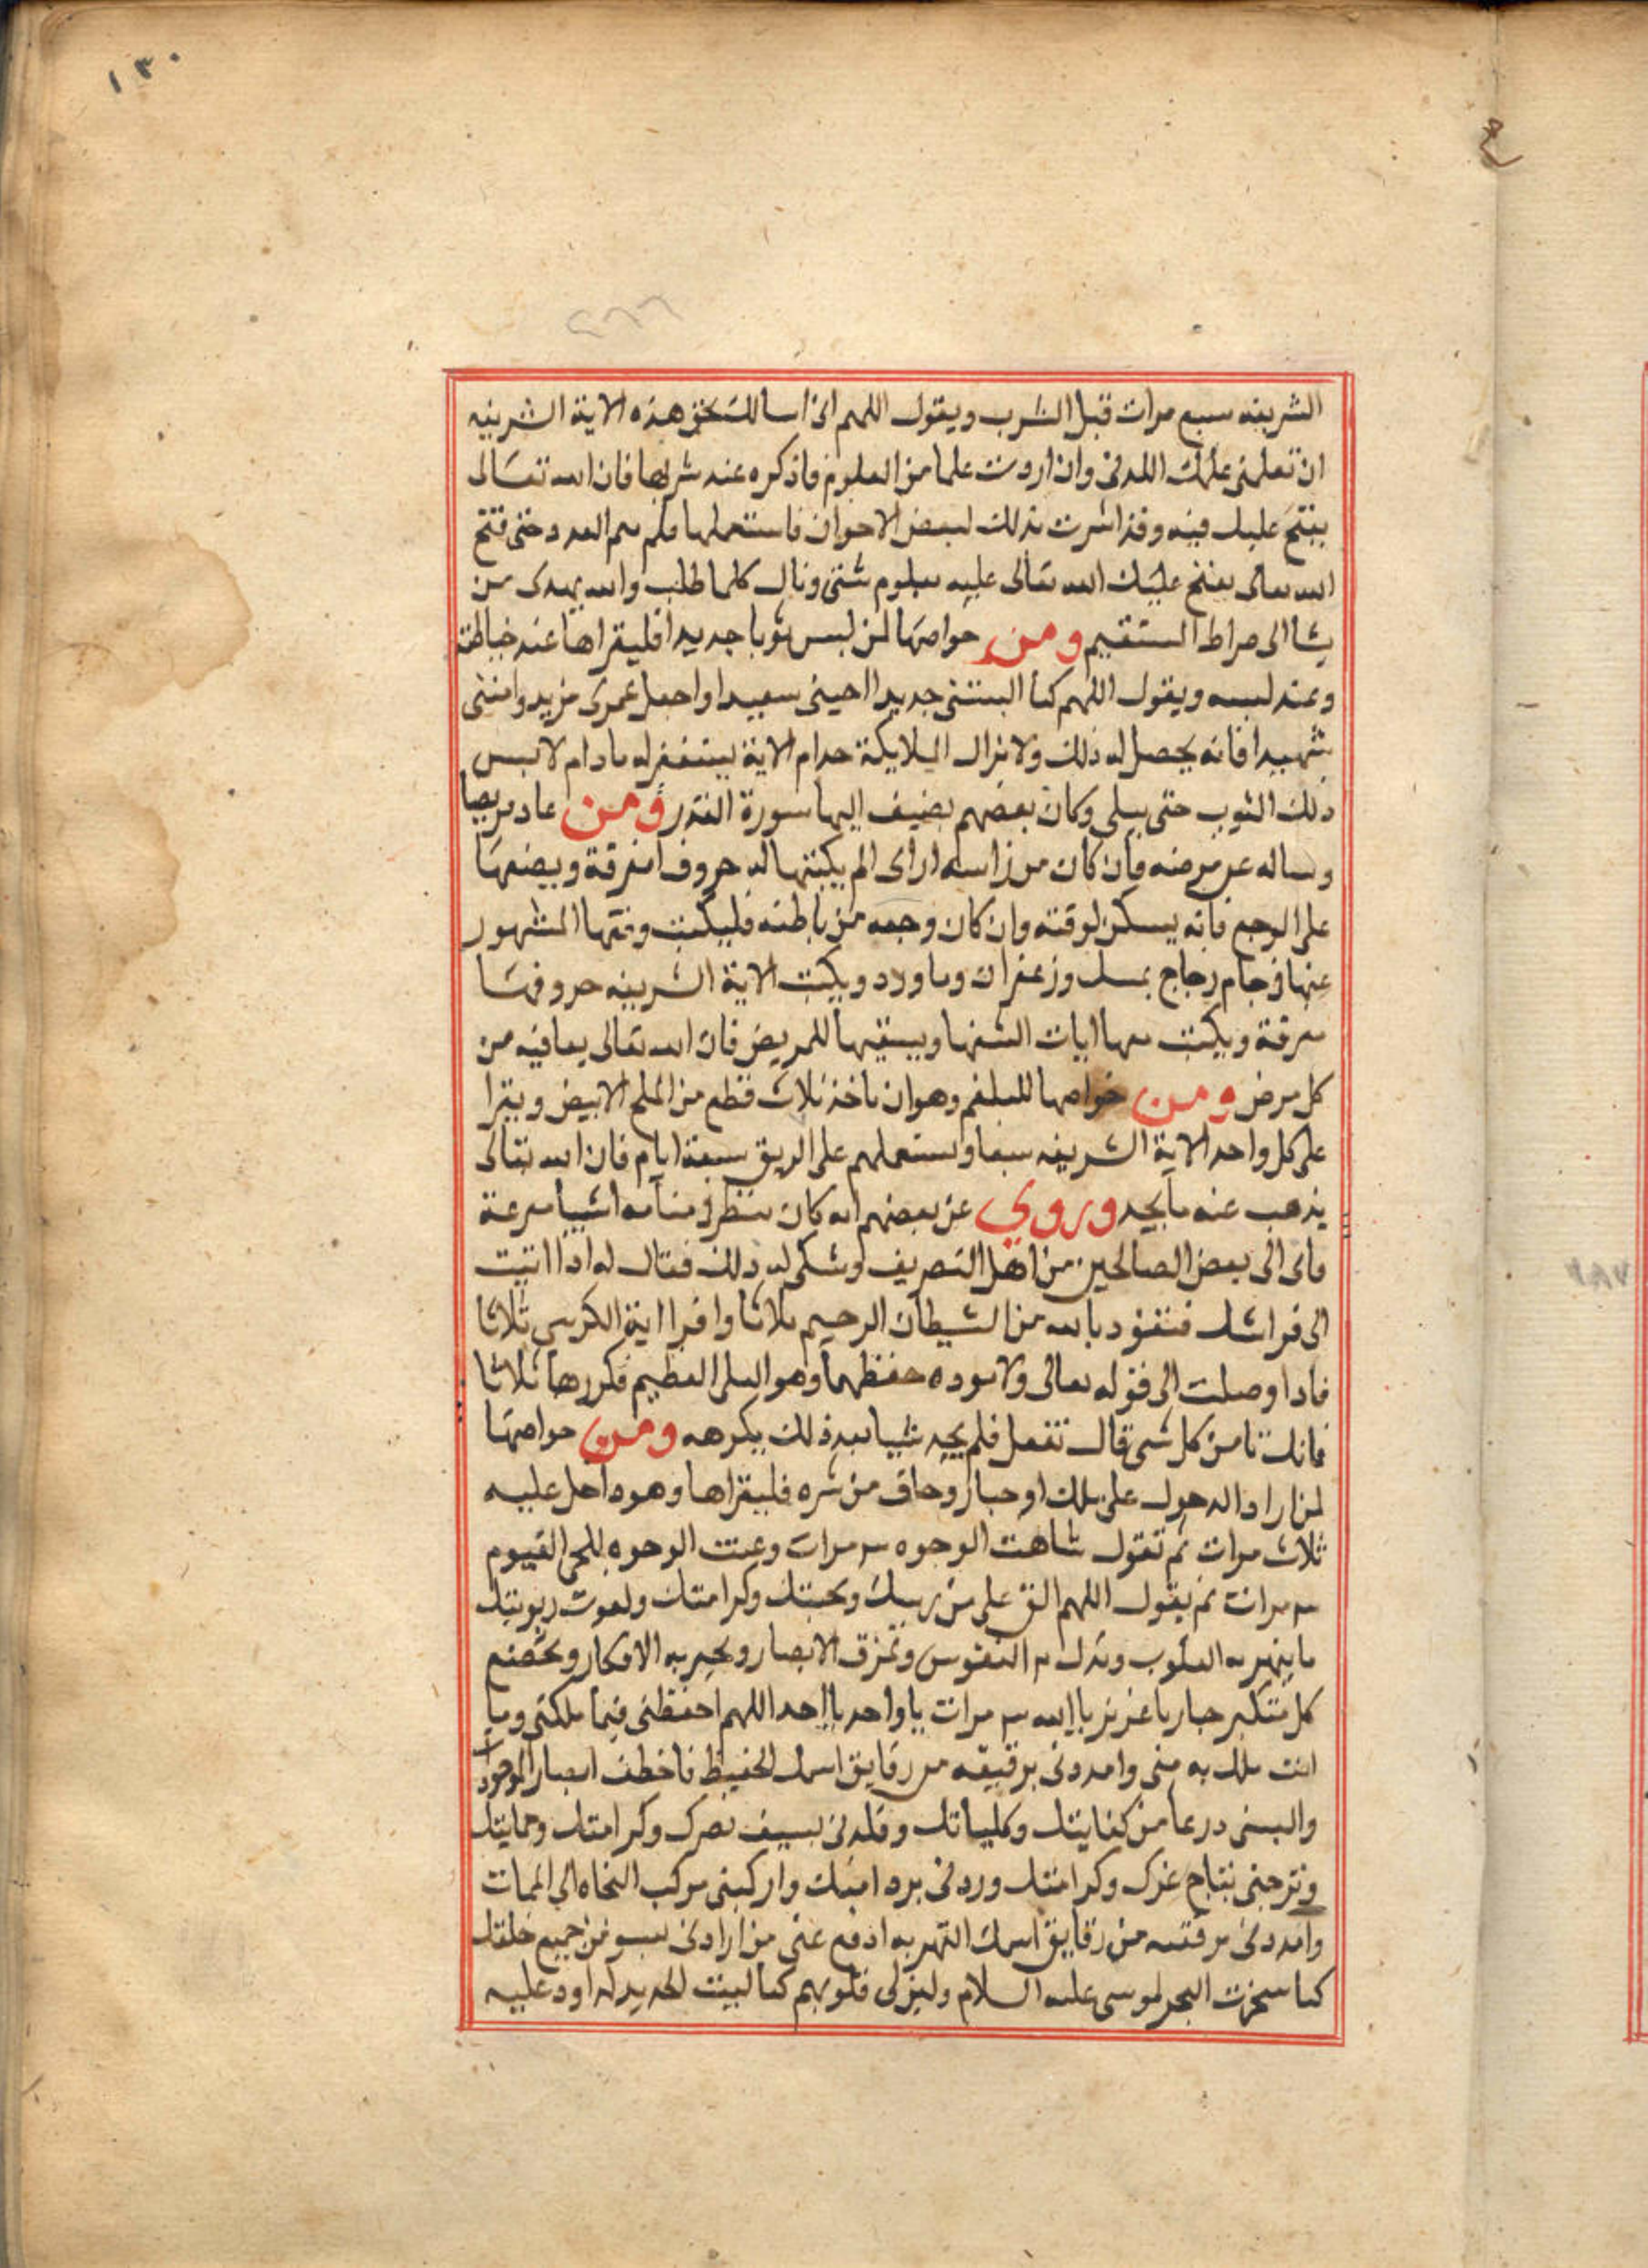 ١٣٠
الشريفه سبع مرات قبل الشرب ويقول اللهم انى اسالك بحق هذه الاية الشريفه
ان تعلمنى علمك اللدنى وان اردت علما من العلوم فاذكره عند شربها فان الله تعالى
يفتح عليك فيه وقد اشرت بذلك لبعض الاخوان فاستعملها فلم يتم العدد حتى فتح
الله تعالى يفتح عليك الله تعالى عليه بعلوم شتى ونال كلما طلب والله يهدى من
يشا الى صراط المستقيم ومن خواصها لمن لبس ثوبا جديدا فليقراها عند خياطته
وعند لبسه ويقول اللهم كما البستنى جديدا احينى سعيدا واجعل عمرى مزيد وامتنى
شهيدا فانه يحصل له ذلك ولا تزال الملايكة خدام الاية يستغفر له مادام لابس
ذلك الثوب حتى يبلى وكان بعضهم يضيف اليها سورة القدر ومن عاد مريضا
وساله عن مرضه فان كان من راسه او اى الم يكتبها له حروف مفرقة ويضعها
على الوجع فانه يسكن لوقته وان كان وجعه من باطنه فليكتب وفقها المشهور
عنها فى جام زجاج بمسك وزعفران وماورد ويكتب الاية الشريفه حروفها
مفرقة ويكتب معها ايات الشفا ويسقيها للمريض فان الله تعالى يعافيه من
كل مرض ومن خواصها للبلغم وهو ان ناخذ ثلاث قطع من الملح الابيض ويقرا
على كل واحد الاية الشريفه سبعا ويستعملهم على الريق سبعة ايام فان الله تعالى
يذهب عنه ما يجد وروي عن بعضهم انه كان ينظر فى منامه اشيا مرعبة
فاتى الى بعض الصالحين من اهل التصريف وشكى له ذلك فقال له اذا اتيت
الى فراشك فتعوذ بالله من الشيطان الرجيم ثلاثا واقرا اية الكرسي ثلاثا
فاذا وصلت الى قوله تعالى ولا يوده حفظهما وهو العلى العظيم فكررها ثلاثا
فانك تامن كل شى قال ففعل فلم يجد شييا بعد ذلك يكرهه ومن خواصها
لمن اراد الدخول على ملك او جبار وخاف من شره فليقراها وهو داخل عليه
ثلاث مرات ثم تقول شاهت الوجوه مرات وعنت الوجوه للحى القيوم
مرات ثم يقول اللهم الق على من ومحبتك وكرامتك ونعوت ربوبيتك
ما يبهر به القلوب وتذل به النفوس وتمزق الابصار ويحير به الافكار ويخضع
كل متكبر جبار يا عزيز يا الله مرات يا واحد يا احد اللهم احفظنى فيما ملكتى وما
انت ملك به منى وامددنى برقيقه من رقايق اسمك الحفيظ فاخطف ابصار الموجودات
والبسنى درعا من كفايتك وكلياتك وقلدنى بسيف نصرك وكرامتك وحمايتك
وتوجنى بتاج عزك وكرامتك وردنى برد امنك واركبنى مركب النجاه الى الممات
وامددنى برقيقه من رقايق اسمك القهر به ادفع عنى من ارادنى بسو من جميع خلقك
كما سخرت البحر لموسى عليه السلام ولين لى قلوبهم كما لينت الحديد لداود عليه